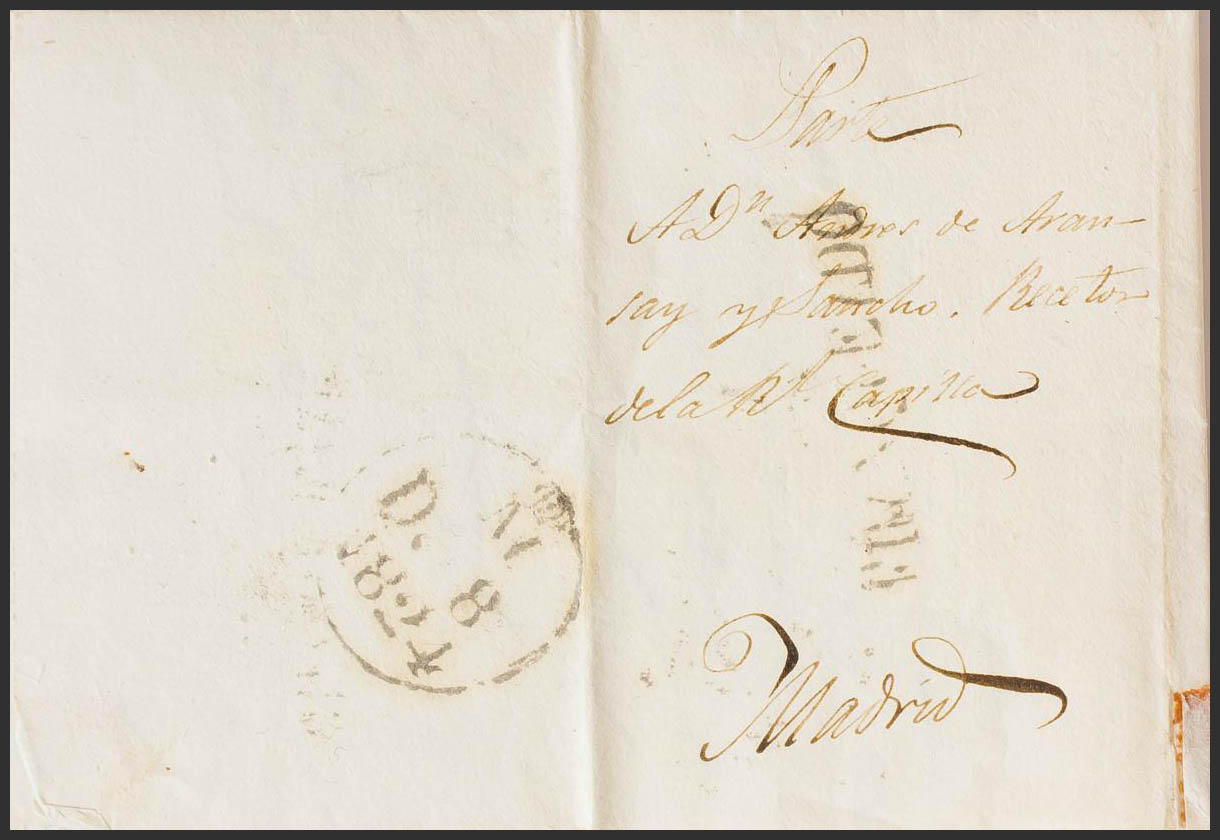 Parte
A Dⁿ Andres de Aran-
say y Sancho, Recetor
de la Rˡ Capilla
Madrid